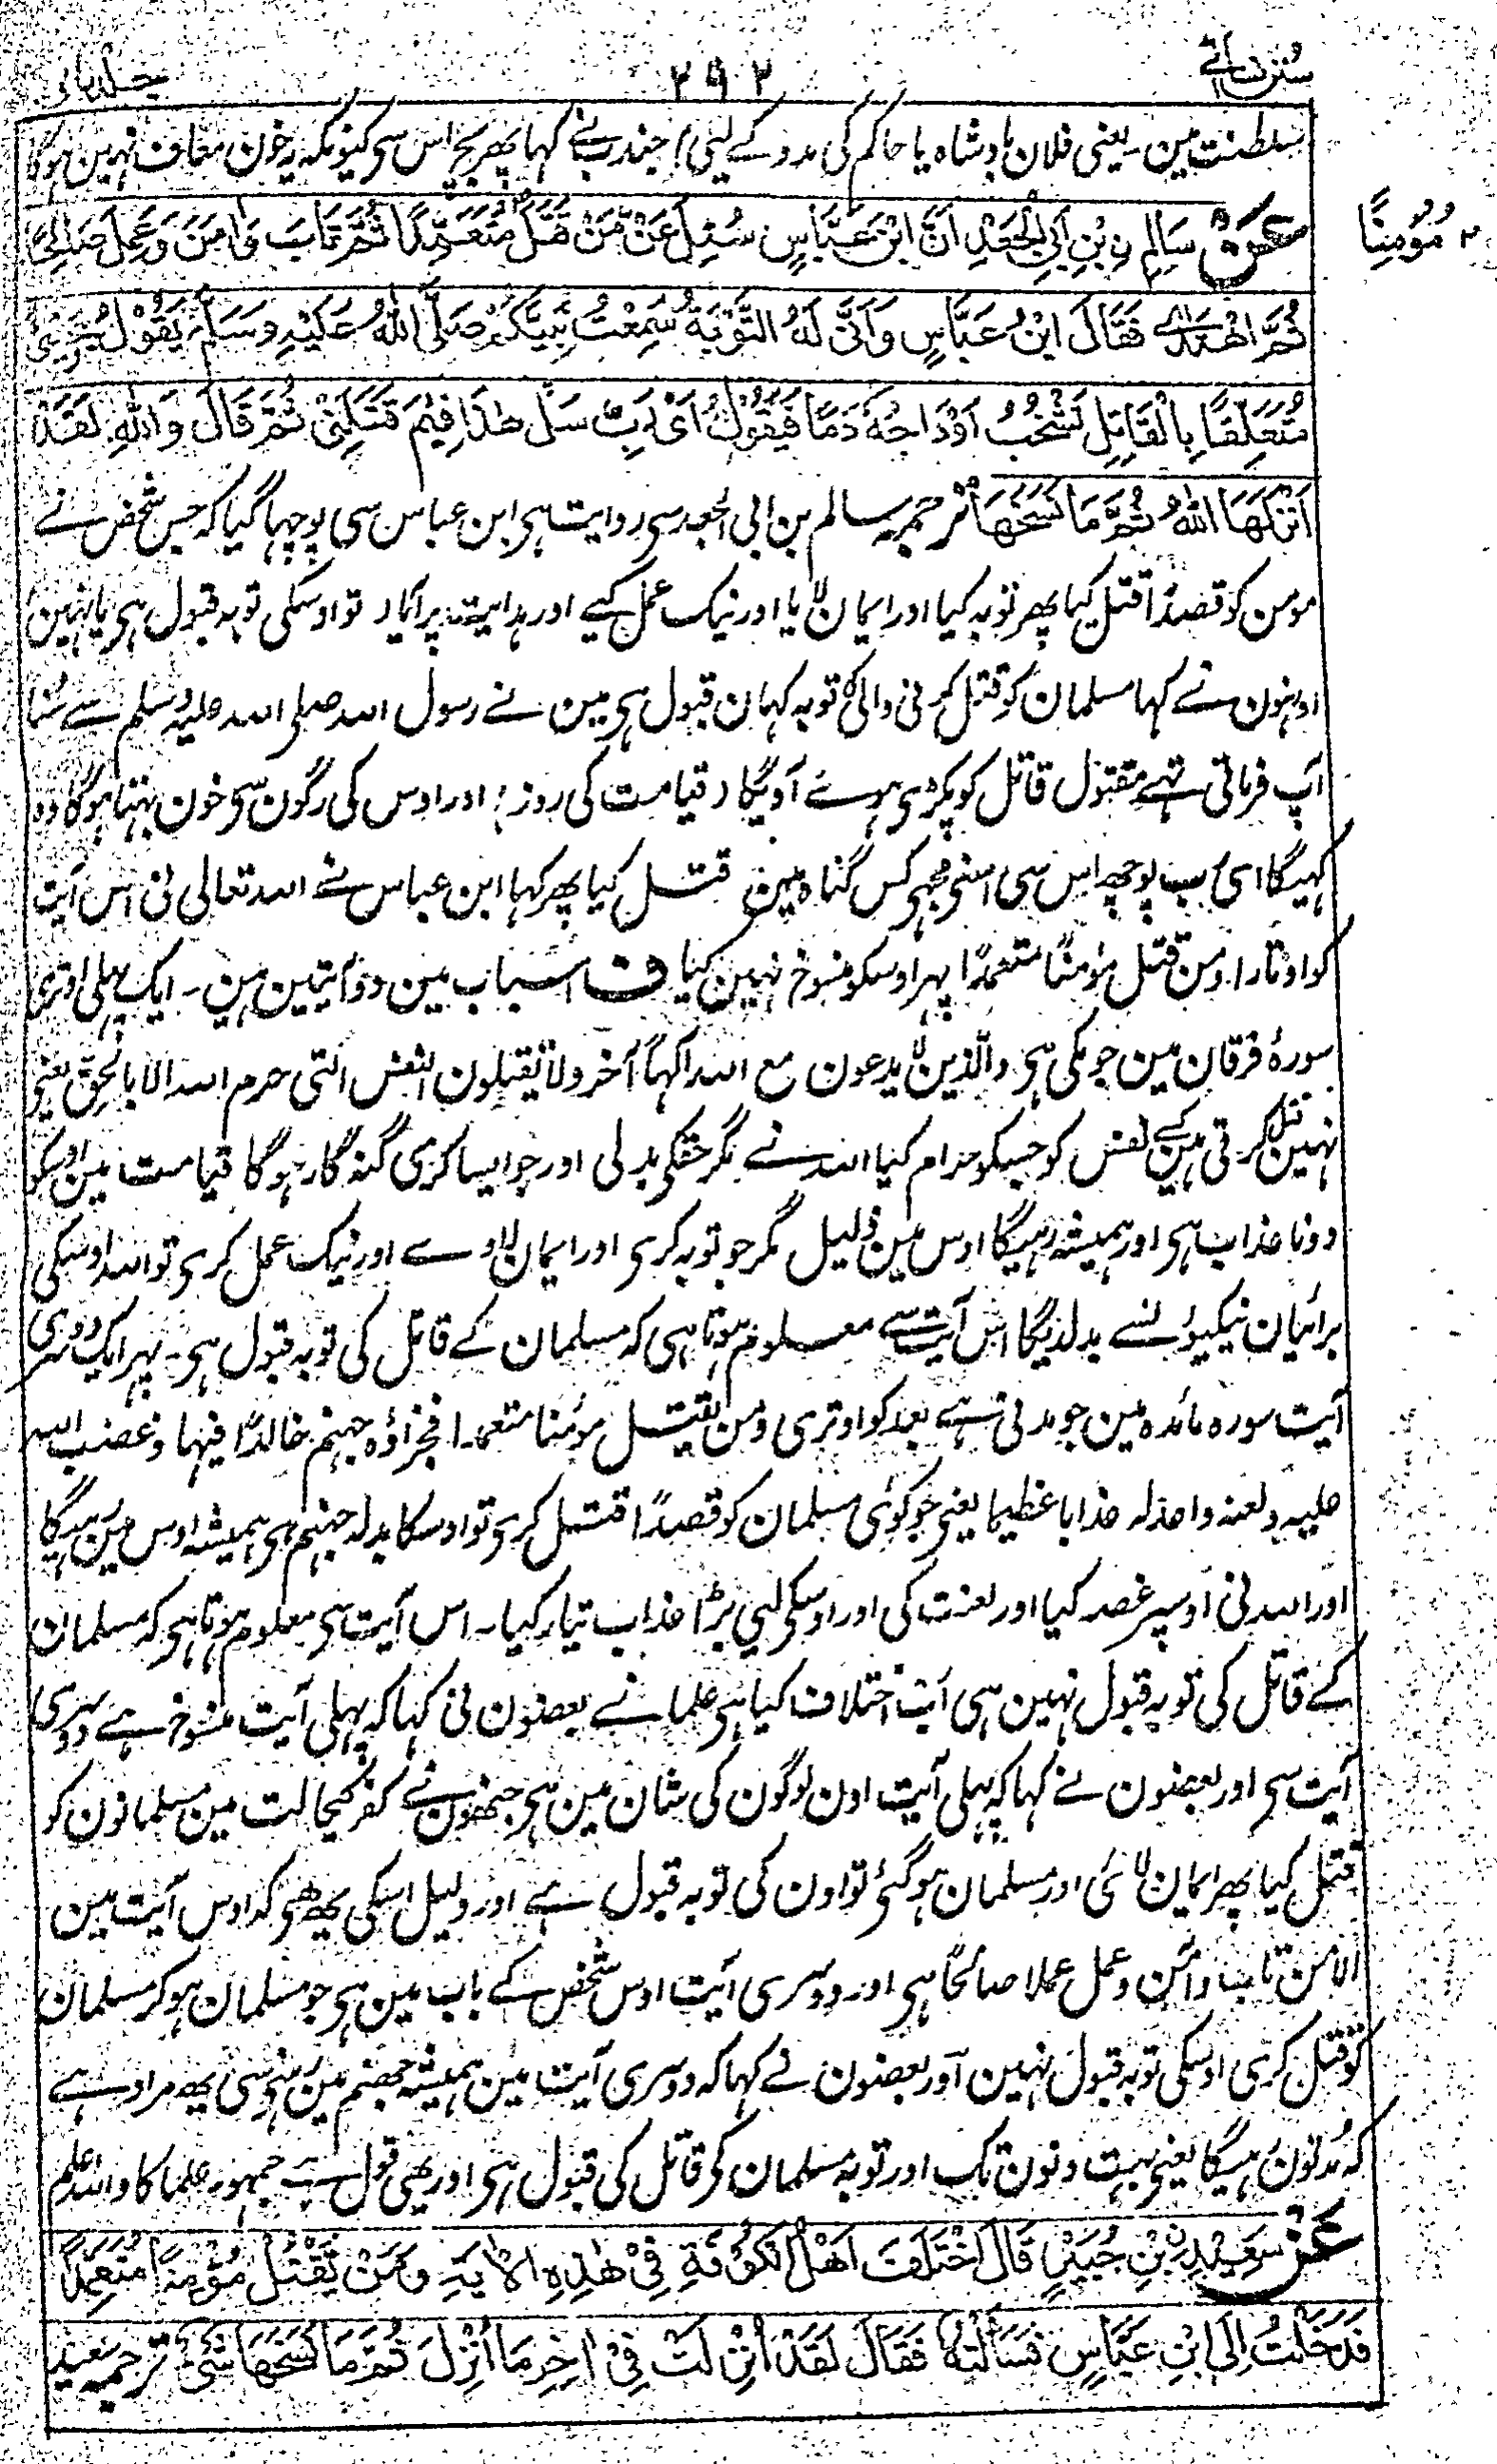 سنن نسائے
۲۹۲
جلد ثانی
سلطنت مین ۔ یعنی فلان بادشاہ یا حاکم کی مدد کے لیئی) جندب نے کہا پھر بچ اس سی کیونکہ یہ خون معاف نہین ہوگا
عَنْ سَالِمِ بْنِ اَبِی الْجَعْدِ اَنَّ ابْنَ عَبَّاسٍ سُئِلَ عَنْ مَنْ قَتَلَ مُتَعَمِّدًا ثُمَّ تَابَ وَاٰمَنَ وَعَمِلَ صَالِحًا
۲ مُؤْمِنًا
ثُمَّ اهْتَدٰی فَقَالَ ابْنُ عَبَّاسٍ وَاَنّٰی لَهُ التَّوْبَةُ سَمِعْتُ نَبِیَّکُمْ صَلَّی اللّٰهُ عَلَیْهِ وَسَلَّمَ یَقُوْلُ یَجِیْئُ
مُتَعَلِّقًا بِالْقَاتِلِ تَشْخُبُ اَوْدَاجُهٗ دَمًا فَیَقُوْلُ اَیْ رَبِّ سَلْ هٰذَا فِیْمَ قَتَلَنِیْ ثُمَّ قَالَ وَاللّٰهِ لَقَدْ
اَنْزَلَهَا اللّٰهُ ثُمَّ مَا نَسَخَهَا ترجمہ سالم بن ابی الجعد سی روایت ہی ابن عباس سی پوچھا گیا کہ جس شخص نے
مومن کو قصدًا قتل کیا پھر توبہ کیا اور ایمان لایا اور نیک عمل کیے اور ہدایت پر آیا ۔ تو اوسکی توبہ قبول ہی یا نہین
اونہون نے کہا مسلمان کو قتل کرنی والی کی توبہ کہان قبول ہی مین نے رسول اللہ صلی اللہ علیہ وسلم سے سُنا
آپ فرماتی تہے مقتول قاتل کو پکڑی ہوئے آویگا (قیامت کی روز) اور اوس کی رگون سی خون بہتا ہوگا وہ
کہیگا ای رب پوچھ اس سی اسنی مجہی کس گناہ مین قتل کیا پھر کہا ابن عباس نے اللہ تعالی نی اس آیت
کو اوتارا ومن قتل مؤمنًا متعمدًا پہر اوسکو منسوخ نہین کیا ف اسباب مین دو آیتین ہین ۔ ایک پہلی اوتری
سورۂ فرقان مین جو مکی ہی والذین لا یدعون مع اللہ الٰہًا آخر ولا یقتلون النفس التی حرم اللہ الا بالحق یعنی
نہین قتل کرتی ہین کسے نفس کو جسکو حرام کیا اللہ نے مگر حقکی بدلی اور جو ایسا کری گنہ گار ہوگا قیامت مین اوسکو
دونا عذاب ہی اور ہمیشہ رہیگا اوس مین ذلیل مگر جو توبہ کری اور ایمان لاوے اور نیک عمل کری تو اللہ اوسکی
برائیان نیکیوئنسے بدلدیگا اس آیت سے معلوم ہوتا ہی کہ مسلمان کے قاتل کی توبہ قبول ہی ۔ پہر ایک دوسری
آیت سورہ مائدہ مین جو مدنی ہے بعد کو اوتری ومن یقتل مؤمنا متعمدا فجزاؤہ جہنم خالدًا فیہا وغضب اللہ
علیہ ولعنہ واعدلہ عذابا عظیما یعنی جو کوئی مسلمان کو قصدًا قتل کری تو اوسکا بدلہ جہنم ہی ہمیشہ اوس مین رہیگا
اور اللہ نی اوسپر غصہ کیا اور لعنت کی اور اوسکی لیی بڑا عذاب تیار کیا ۔ اس آیت سی معلوم ہوتا ہی کہ مسلمان
کے قاتل کی توبہ قبول نہین ہی اب اختلاف کیا ہی علما نے بعضون نی کہا کہ پہلی آیت منسوخ ہے دوسری
آیت سی اور بعضون نے کہا کہ پہلی آیت اون لوگون کی شان مین ہی جنھون نے کفر کیحالت مین مسلمانون کو
قتل کیا پھر ایمان لائی اور مسلمان ہو گئی تو اون کی توبہ قبول ہے اور دلیل اسکی یھ ھی کہ اوس آیت مین
الا من تاب وآمن وعمل عملا صالحًا ہی اور دوسری آیت اوس شخص کے باب مین ہی جو مسلمان ہو کر مسلمان
کو قتل کری اوسکی توبہ قبول نہین اور بعضون نے کہا کہ دوسری آیت مین ہمیشہ جھنم مین رہنی سی یھ مراد ہے
کہ مُدتون رہیگا یعنی بہت دنون تک اور توبہ مسلمان کی قاتل کی قبول ہی اور یھی قول ہے جمہور علما کا واللہ اعلم
عَنْ سَعِیْدِ بْنِ جُبَیْرٍ قَالَ اخْتَلَفَ اَهْلُ الْکُوْفَةِ فِیْ هٰذِهِ الْاٰیَةِ وَمَنْ یَّقْتُلْ مُؤْمِنًا مُتَعَمِّدًا
فَدَخَلْتُ اِلَی ابْنِ عَبَّاسٍ فَسَاَلْتُهٗ فَقَالَ لَقَدْ اُنْزِلَتْ فِیْ اٰخِرِ مَا اُنْزِلَ ثُمَّ مَا نَسَخَهَا شَیْءٌ ترجمہ سعید